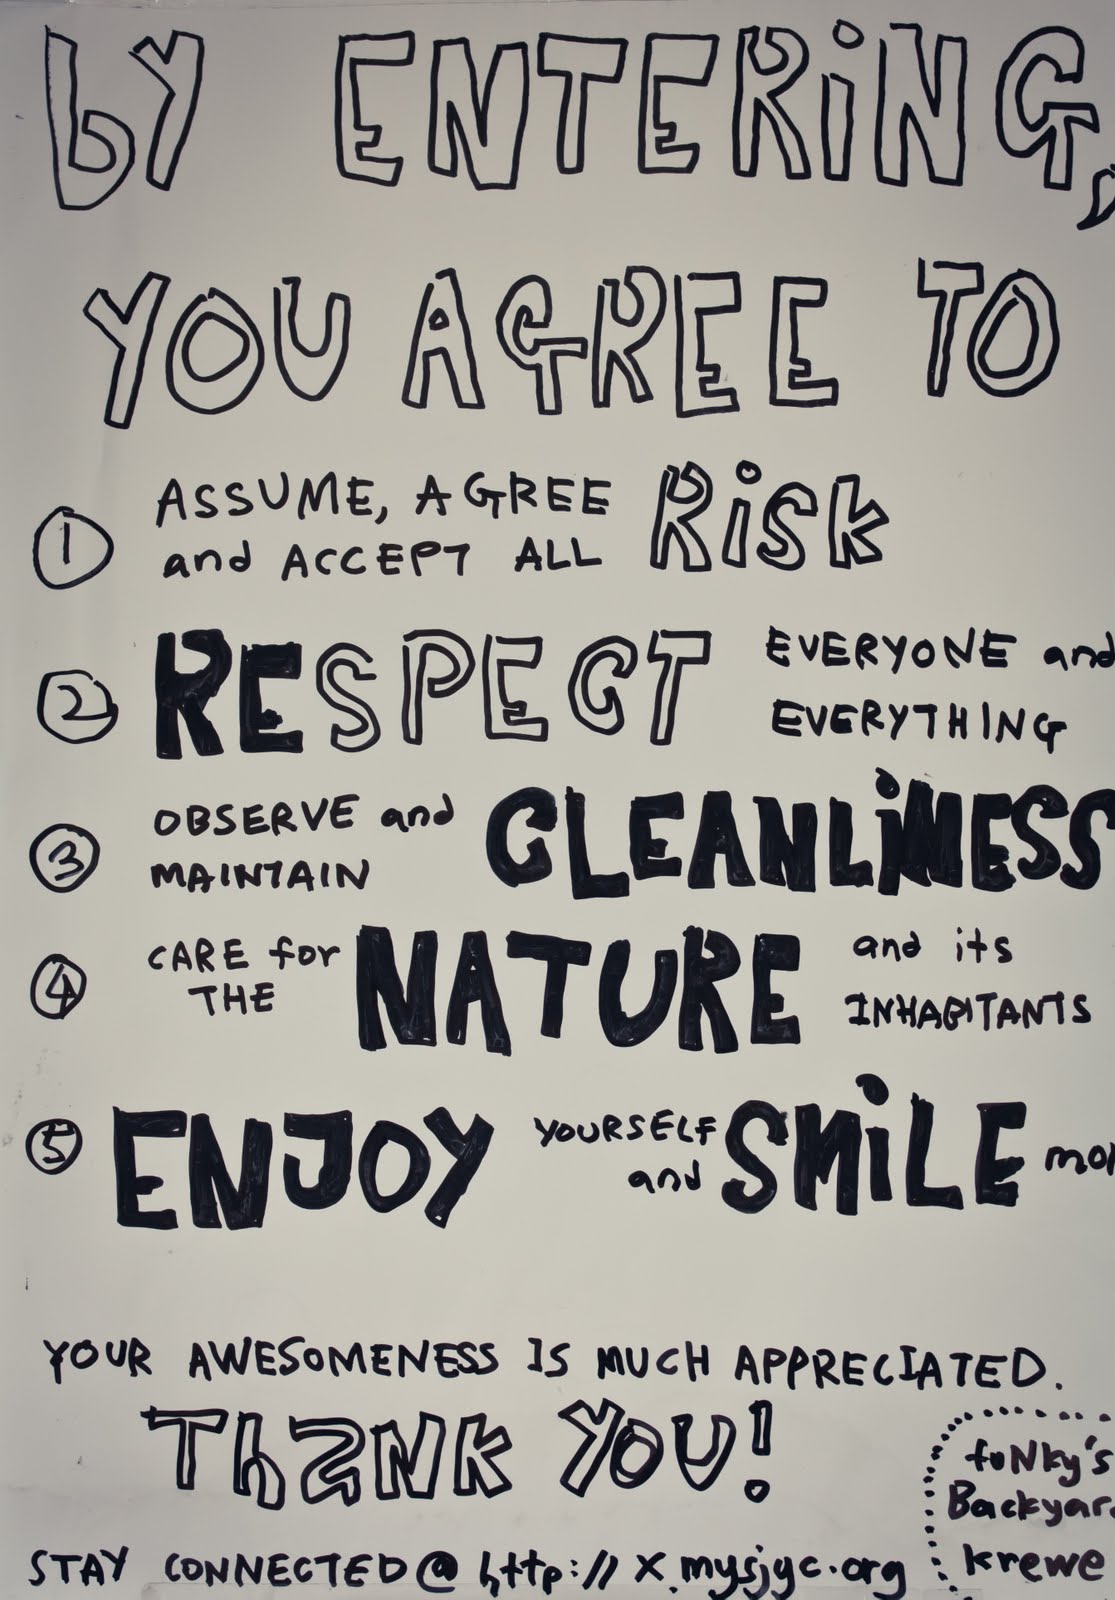 by ENTERiNG,
YOU AGREE TO
1 ASSUME, AGREE and ACCEPT ALL Risk
2 RESPECT EVERYONE and EVERYTHING
3 OBSERVE and MAINTAIN CLEANLiNESS
4 CARE for THE NATURE and its INHABITANTS
5 ENJOY YOURSELF and SMiLE
YOUR AWESOMENESS IS MUCH APPRECIATED.
ThaNK YOU!
STAY CONNECTED @ http://x.mysjyc.org
fuNky's
Backyard
krewe